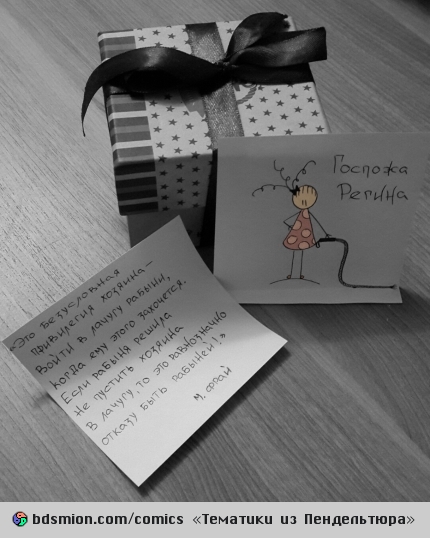 Госпожа
Регина
«Это безусловная
привилегия хозяина —
войти в лачугу рабыни,
когда ему этого захочется.
Если рабыня решила
не пустить хозяина
в лачугу, то это равнозначно
отказу быть рабыней!»
М. Фрай
bdsmion.com/comics «Тематики из Пендельтюра»